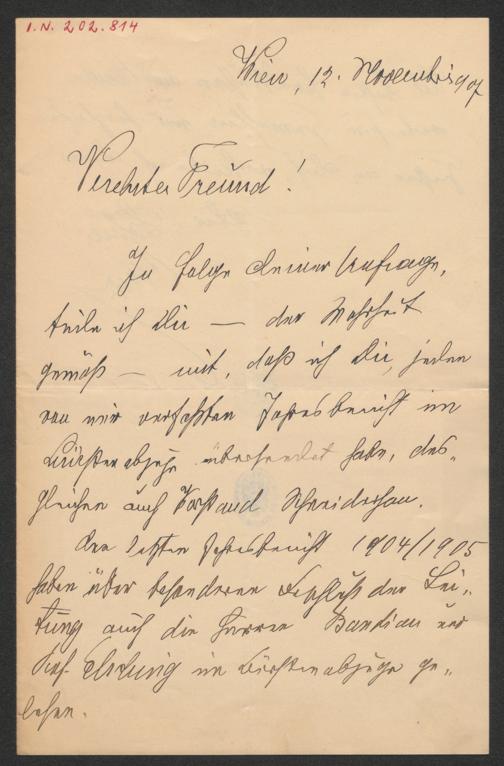 I.N. 202.814
Wien, 12. November 907
Verehrter Freund!
In folge deiner Anfrage,
teile ich Dir — der Wahrheit
gemäß — mit, daß ich Dir, jeden
von mir verfaßten Jahresbericht im
Bürstenabzuge übersendet habe, des„
gleichen auch Vorstand Schneiderhan.
Den letzten Jahresbericht 1904/1905
haben über besonderen Beschluß der Lei„
tung auch die Herren Bandian und
Prof. im Bürstenabzuge ge„
lesen.